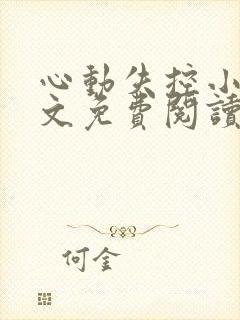 心動失控小
文免費閱讀
何金